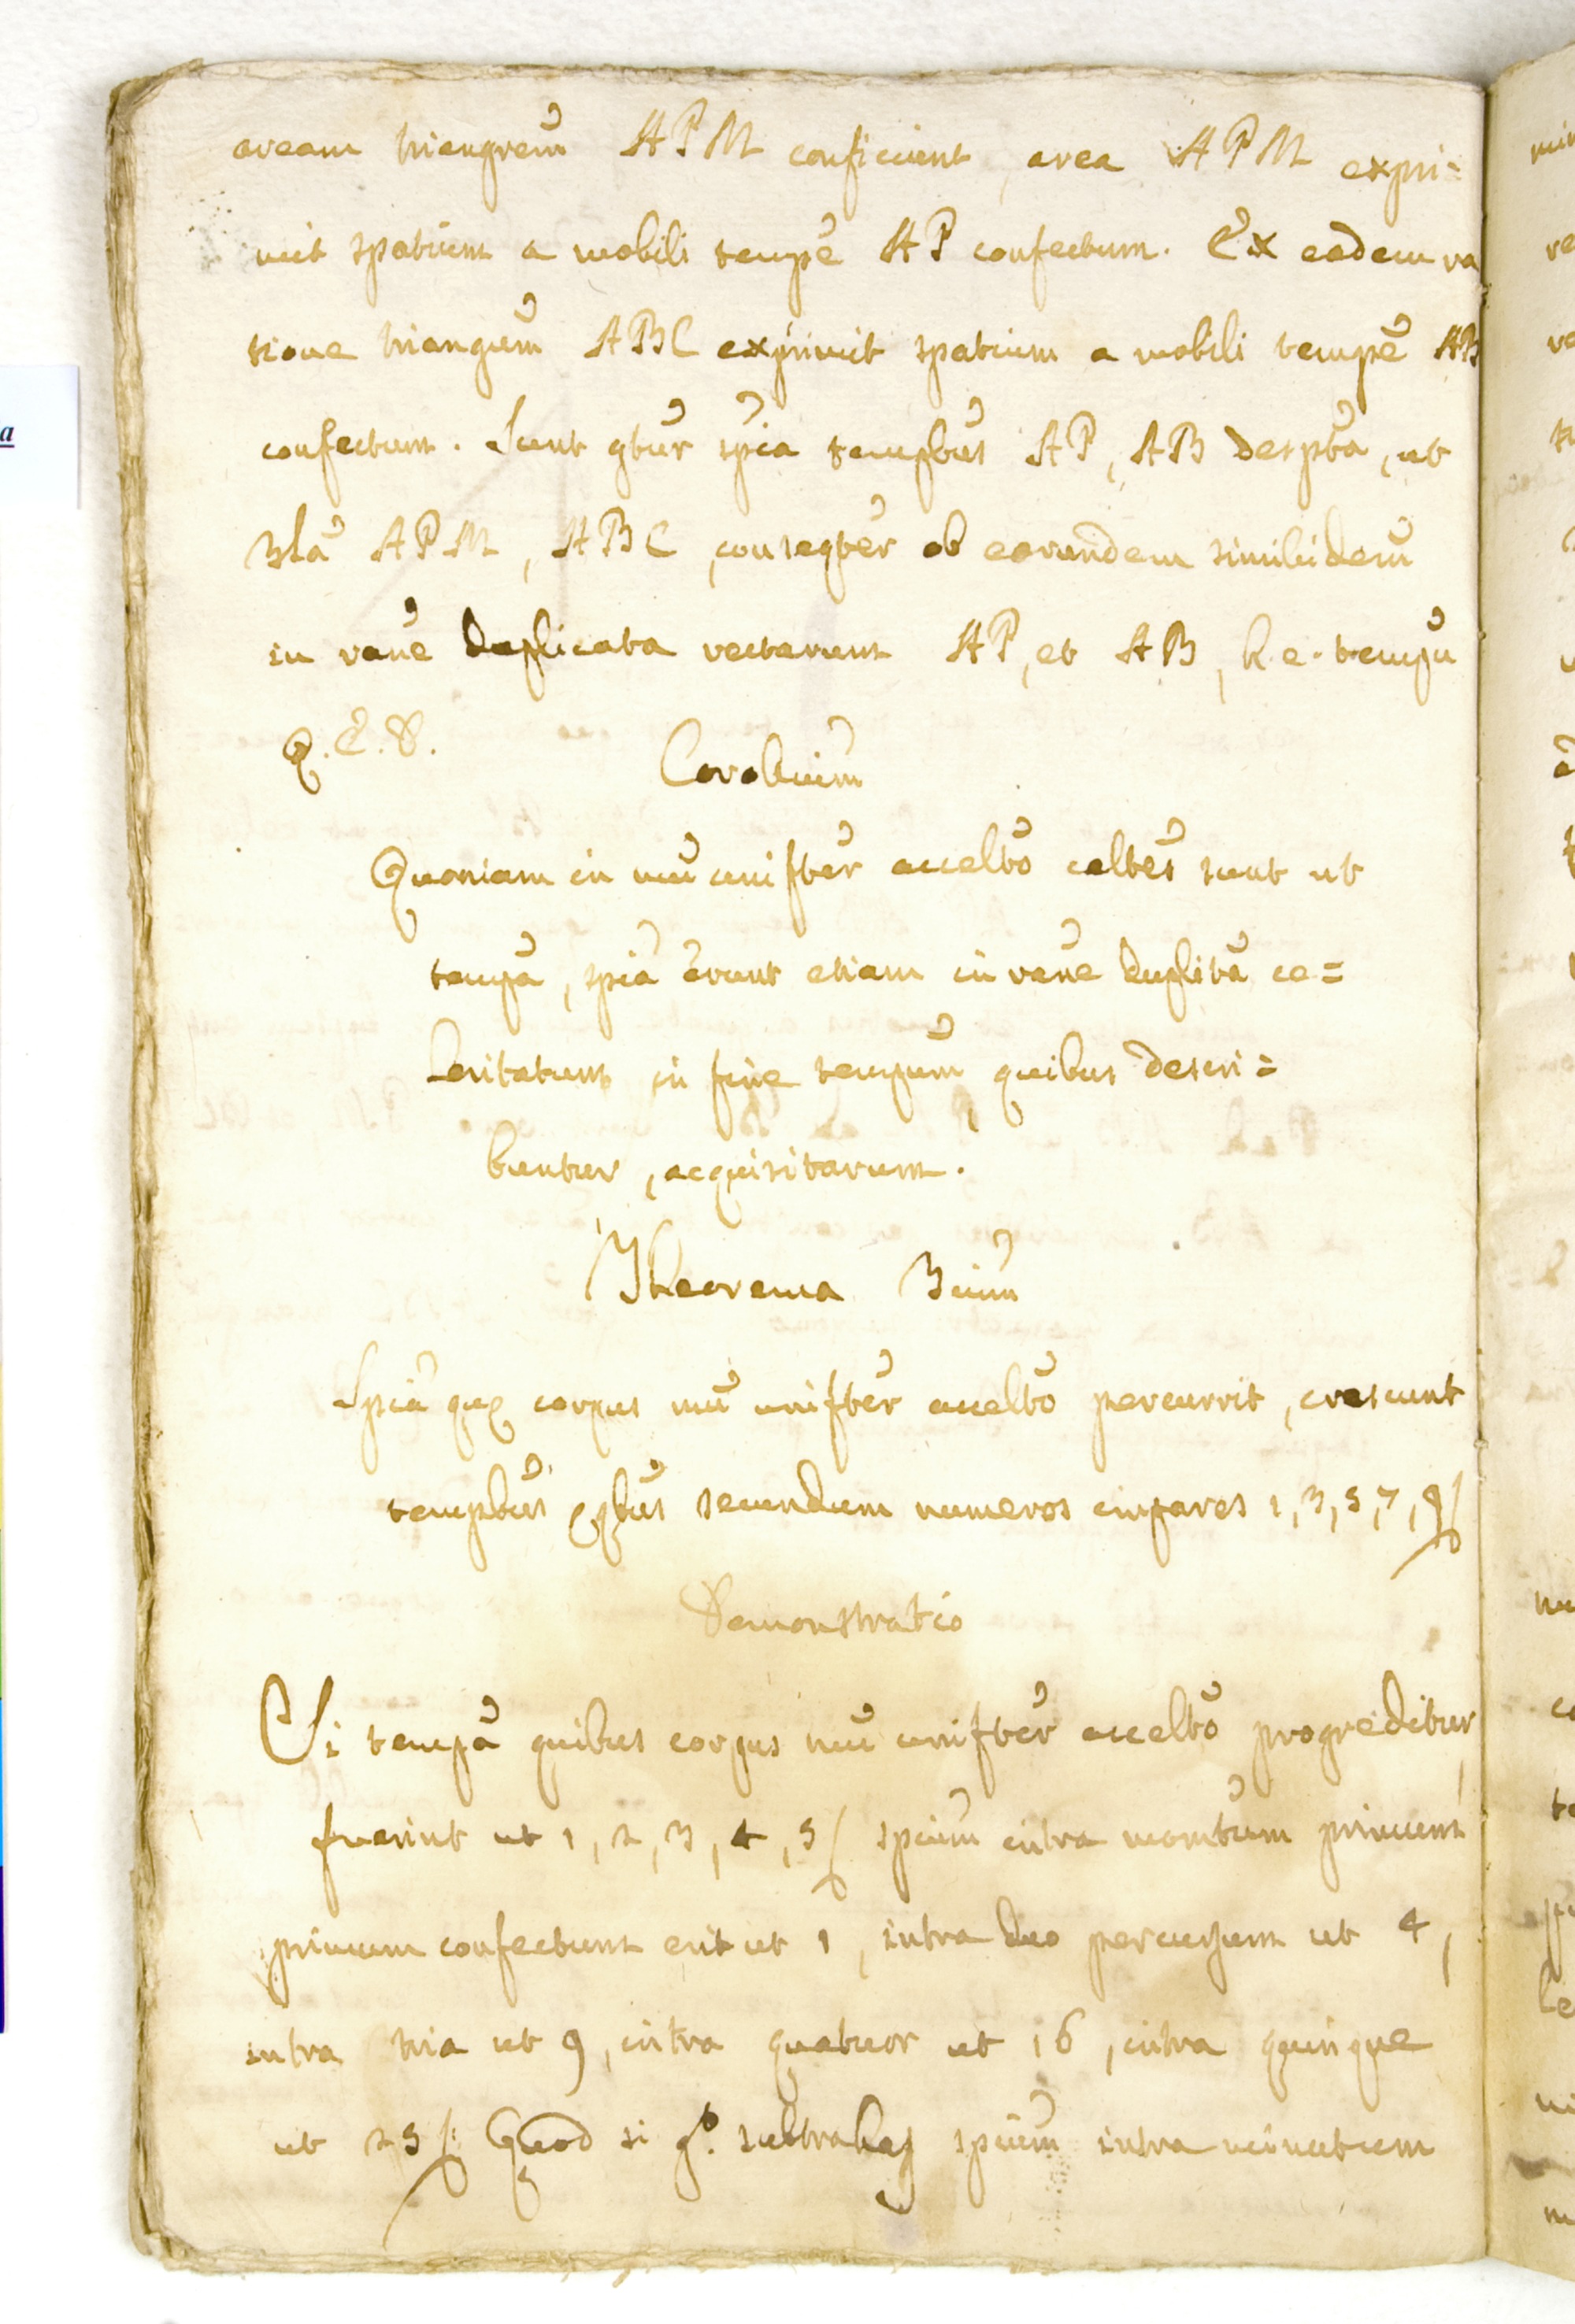 aream triangrem̃ APM conficiunt, area APM expri=
mit spatium a mobili tempẽ AP confectum. Ex eadem ra
tione triangum̃ ABC exprimit spatium a mobili tempẽ AB
confectum. Sunt gtũr spĩa tempbũs AP, AB desptã, ut
3lã APM, ABC, conseqtẽr ob eorundem similidem̃
in ranẽ duplicata rectarum AP, et AB, h.e. tempũ
Q.E.D.
Corollium̃
Quoniam in mũ uniftẽr acceltõ celtẽs sunt ut
tempã, spiã erunt etiam in ranẽ duplitã ce=
leritatum in fine tempum̃, quibus descri=
buntur, acquisitarum.
Theorema 3ium̃
Spiã quę corpus mũ uniftẽr acceltõ percurrit, crescunt
tempbũs ęqbũs secundum numeros impares 1, 3, 5, 7, 9
Demonstratio
Si tempã quibus corpus mũ uniftẽr acceltõ progreditur
fuerint ut 1, 2, 3, 4, 5 spium̃ intra momtũm primum
primum confectum erit ut 1, intra duo percursum ut 4,
intra tria ut 9, intra quatuor ut 16, intra quinque
ut 25. Quod si go. subtrahas spium̃ intra minutum
a